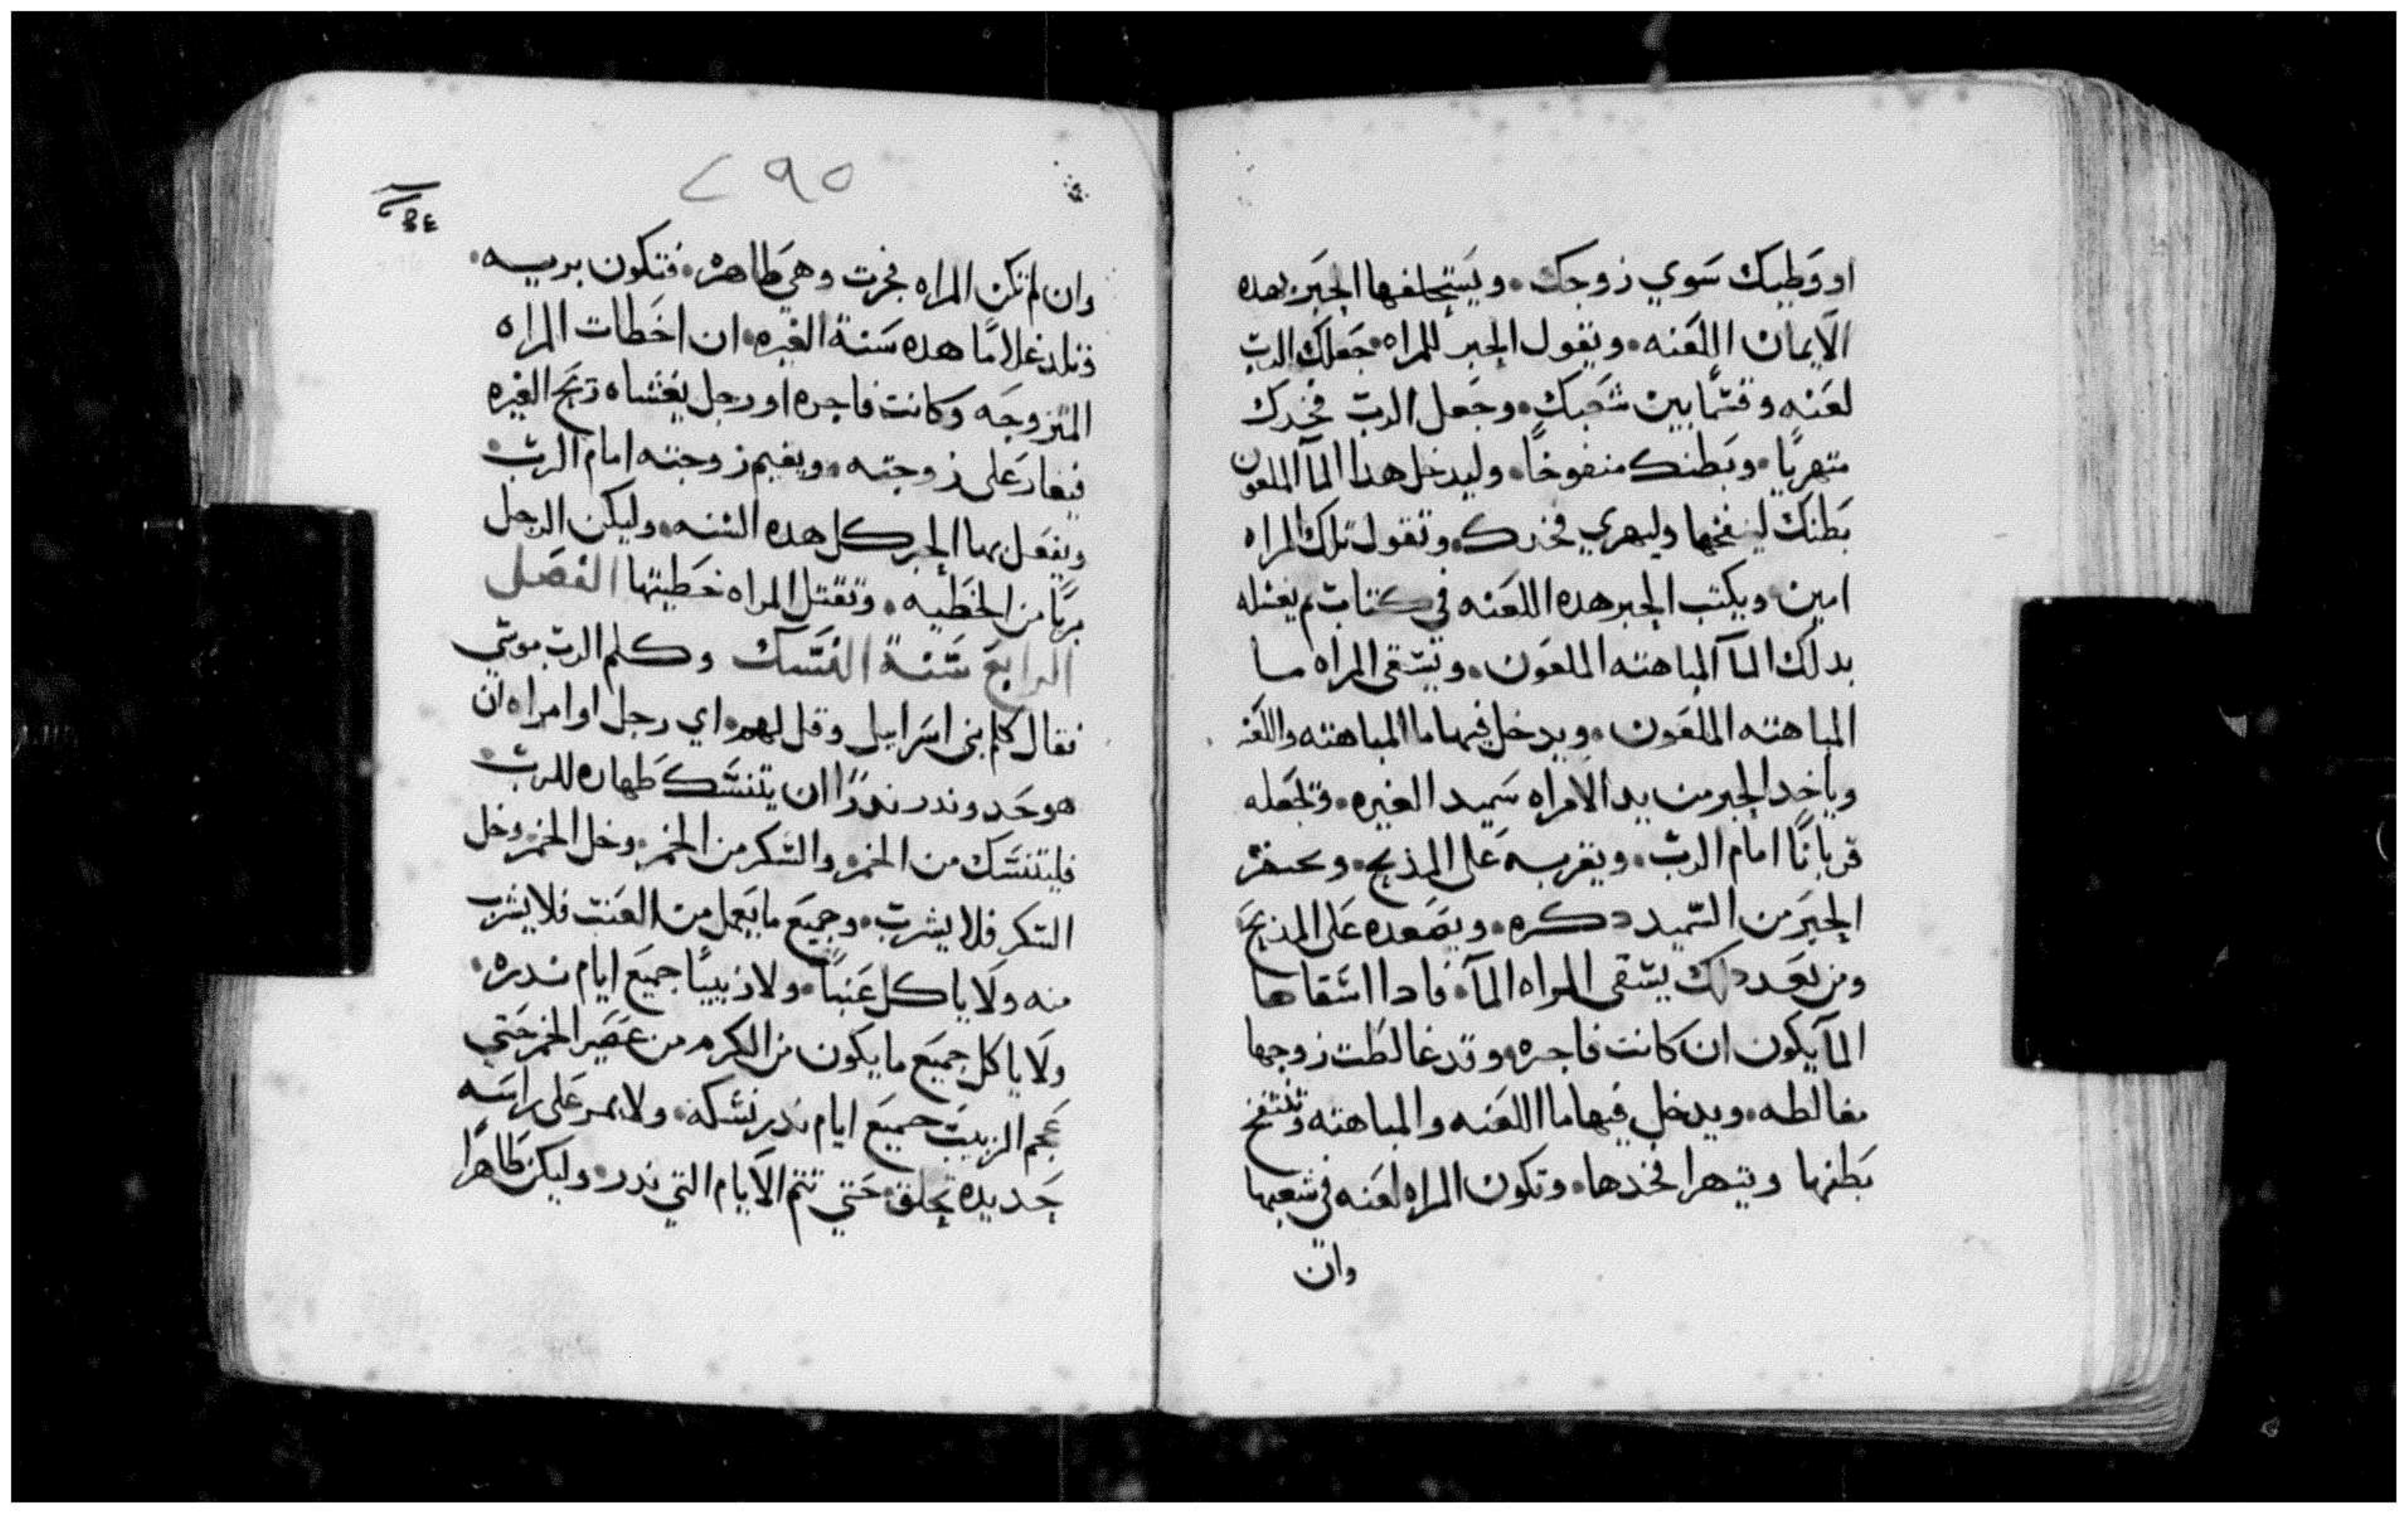 او وطيك سَوي زوجك. ويَستحلفها الحبَر بهده
الايمان اللعَنه. ويقول الحبر للمراه. جَعلك الربّ
لعَنه وقسَمًا بين شعَبك. وجَعل الربّ فخدك
متهريًا. وبَطنك منفوخًا. وليدخل هدا المآ الملعون
بَطنك لينفخها وليهري فخدك. وتقول تلك المراه
امين. ويكتب الحبر هده اللعَنه في كتاب ثم يغسله
بدلك المآ المباهته الملعَون. ويسَقي المراه ما
المباهته الملعَون. ويدخل فيها ما المباهته واللعَنه
وياخد الحبر من يد الامراه سَميد الغيره. وتجَعله
قربانًا امام الربّ. ويقربه عَلى المذبح. ويحتفز
الحبَر من السَميد دكره. ويصَعده عَلى المذبحَ
ومن بعَد دلك يسَقي المراه المآ. فادا اسَقاها
المآ يكون ان كانت فاجره. وقد غالطت زوجها
مغالطه. ويدخل فيها ما اللعَنه والمباهته وتنتفخ
بَطنها ويتهرا فخدها. وتكون المراه لعَنه في شعبها
وان
٢٩٥
وان لم تكن المراه فجرت وهي طاهره. فتكون بريه.
وتلد غلامًا هده سَنة الغيره. ان اخَطات المراه
المتزوجَه وكانت فاجره او رجل يغشاه ريَح الغيره
فيغار عَلى زوجته. ويقيم زوجته امام الربّ.
ويفعَل بها الحبر كل هده السَنه. وليكن الرجل
بريًا من الخَطيه. وتقتل المراه خَطيتها الفصَل
الرابع سَنة النسَك وكلم الرب موسَي
فقال كلم بني اسَراييل وقل لهم. اي رجل او امراه ان
هو حَد وندر ندرًا ان يتنسَك طهاره للربّ
فليتنسَك من الخمر. والسَكر من الخمر. وخل الخمر وخل
السَكر فلا يشربّ. وجميَع ما يعَمل من العَنب فلا يشرب
منه ولا ياكل عَنبًا. ولا زبيبًا جميَع ايام ندره.
ولا ياكل جميَع ما يكون من الكرم من عَصَير الخمر حَتي
عَجم الزبيبَ جميَع ايام ندر نسَكه. ولا يمر عَلى راسَه
حَديده تحلق. حَتي تتم الايام التي ندر. وليكن طاهرًا